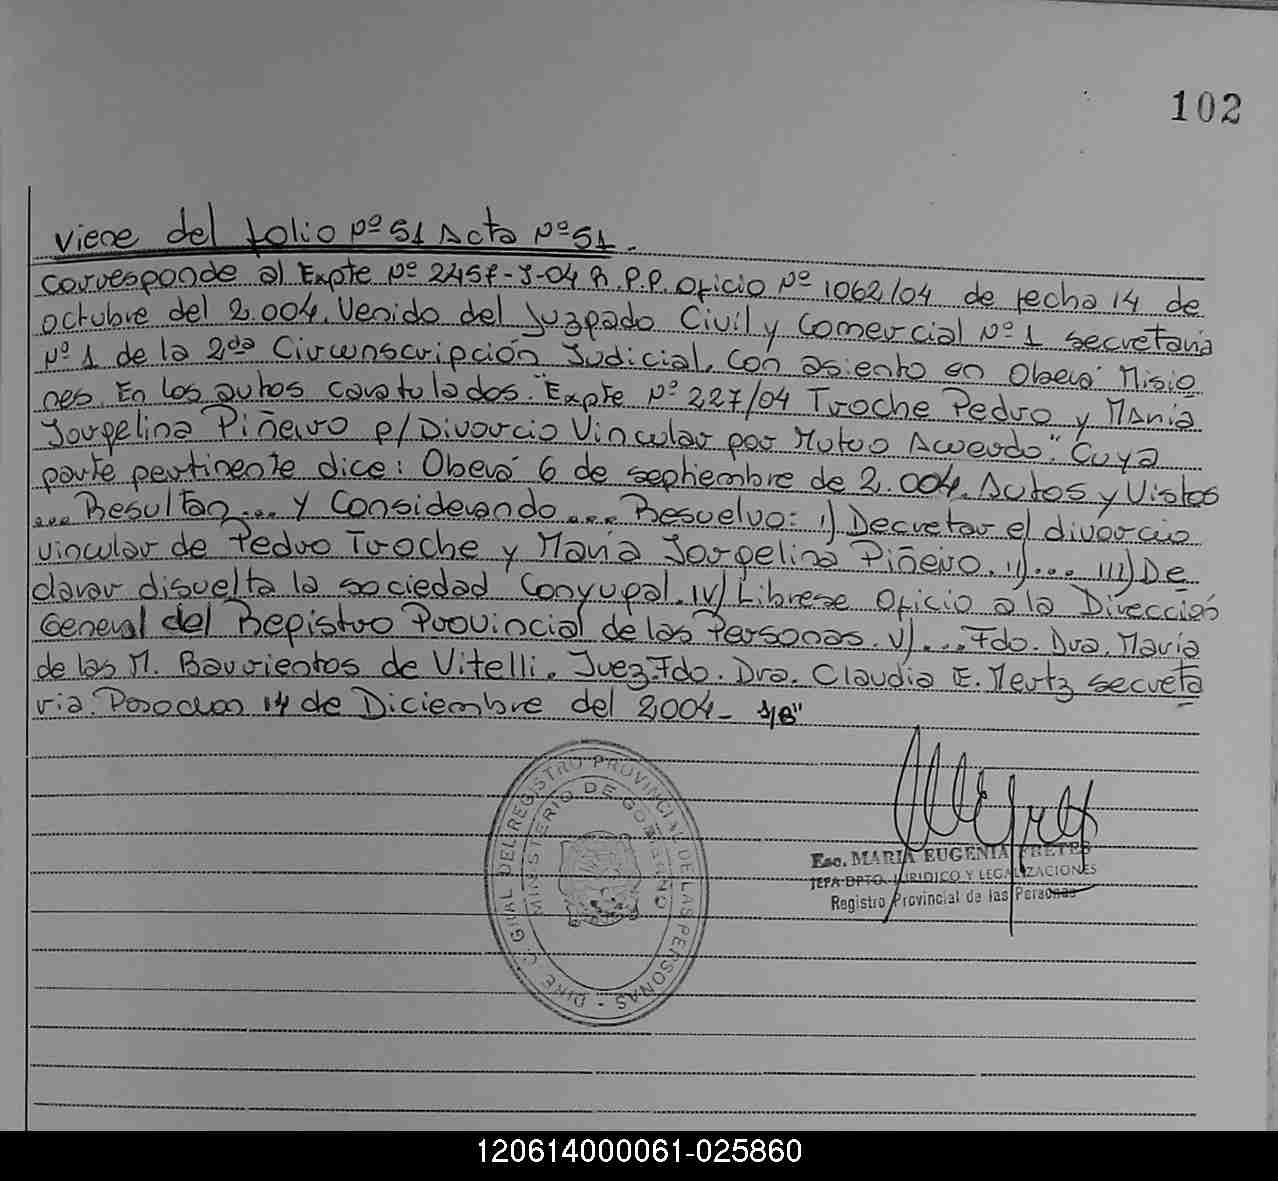 102
Viene del folio Nº 51 Acta Nº 51.
Corresponde al Expte Nº 2457-J-04 R.P.P. Oficio Nº 1062/04 de fecha 14 de
octubre del 2.004. Venido del Juzgado Civil y Comercial Nº 1 secretaria
Nº 1 de la 2da Circunscripción Judicial, con asiento en Oberá Misio
nes. En los autos caratulados. "Expte Nº 227/04 Troche Pedro y María
Jorgelina Piñeiro p/Divorcio Vincular por Mutuo Acuerdo". Cuya
parte pertinente dice: Oberá 6 de septiembre de 2.004. Autos y Vistos
... Resultan ... y Considerando ... Resuelvo: I) Decretar el divorcio
vincular de Pedro Troche y María Jorgelina Piñeiro. II)... III) De
clarar disuelta la sociedad Conyugal. IV) Librese Oficio a la Dirección
General del Registro Provincial de las Personas. V)... Fdo. Dra. María
de las M. Barrientos de Vitelli. Juez. Fdo. Dra. Claudia E. Mertz secreta
ria. Posadas 14 de Diciembre del 2004-
DIREC. GRAL DEL REGISTRO PROVINCIAL DE LAS PERSONAS -
MINISTERIO DE GOBIERNO
Esc. MARIA EUGENIA FRETES
JEFA DPTO. JURIDICO Y LEGALIZACIONES
Registro Provincial de las Personas
120614000061-025860